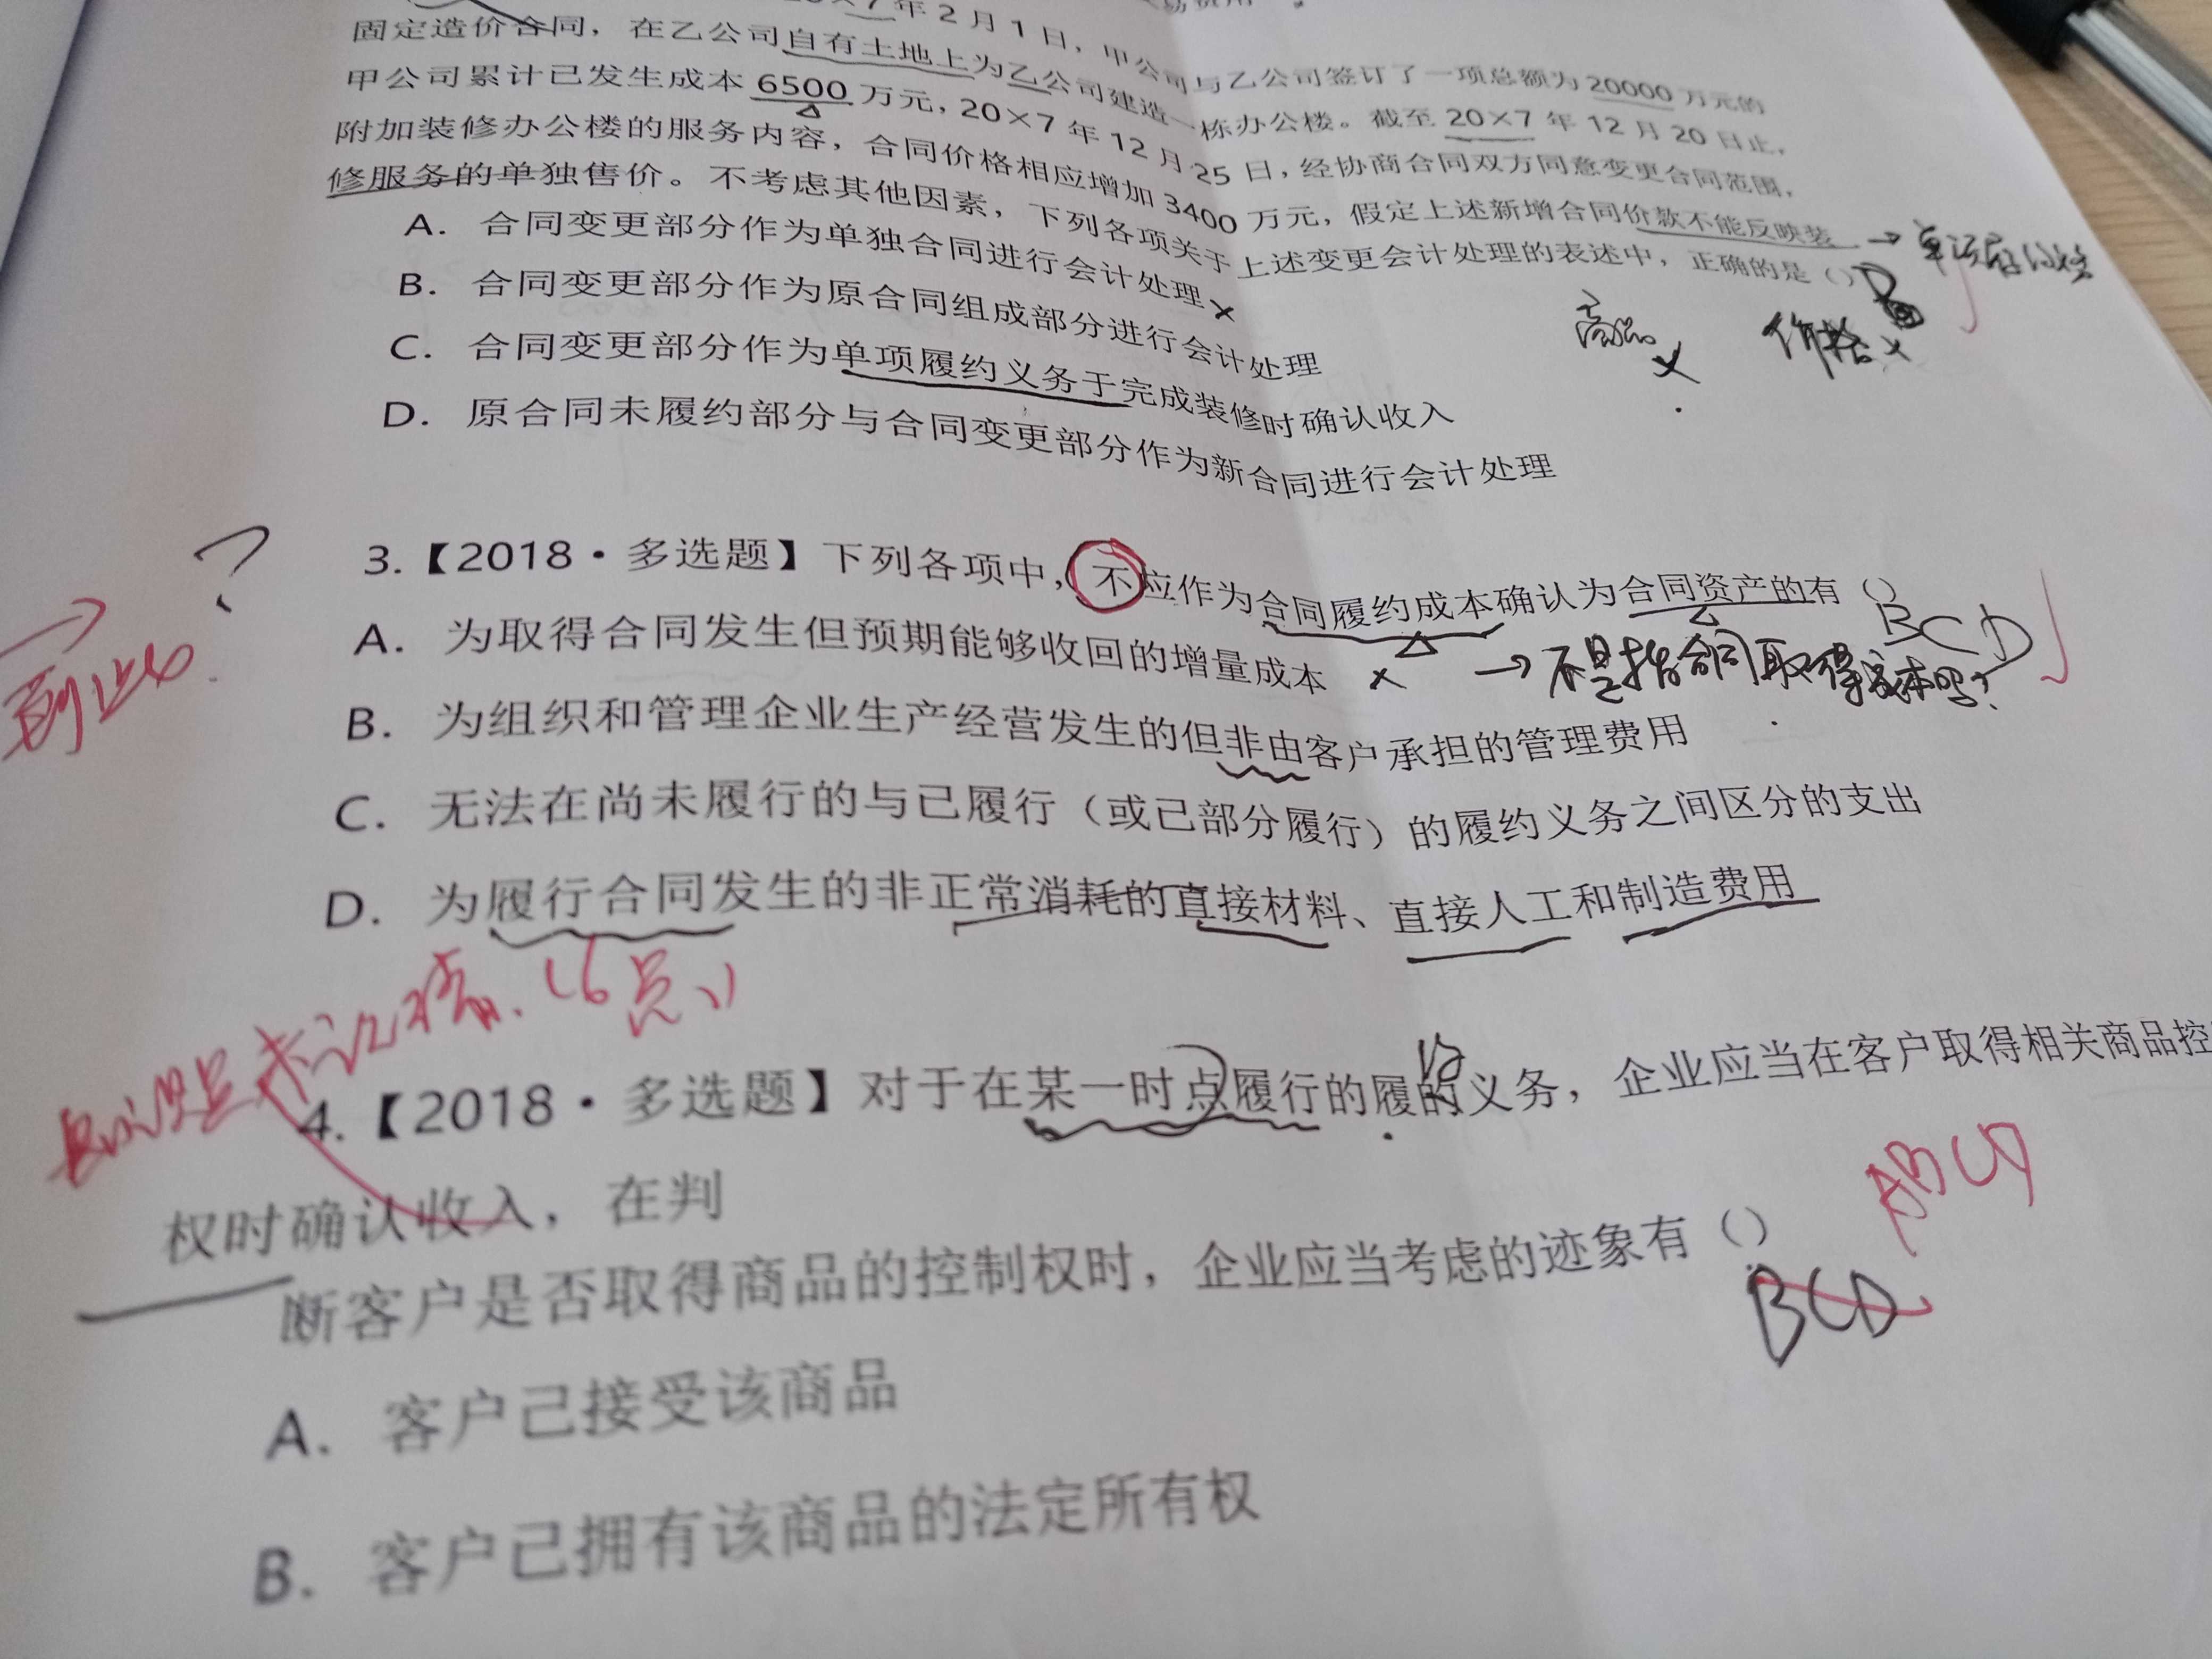 年2月1日，甲公司与乙公司签订了一项总额为20000万元的
固定造价合同，在乙公司自有土地上为乙公司建造一栋办公楼。截至20×7年12月20日止，
甲公司累计已发生成本6500万元，20×7年12月25日，经协商合同双方同意变更合同范围，
附加装修办公楼的服务内容，合同价格相应增加3400万元，假定上述新增合同价款不能反映装
修服务的单独售价。不考虑其他因素，下列各项关于上述变更会计处理的表述中，正确的是（）
D
A. 合同变更部分作为单独合同进行会计处理×
商品× 价格×
B. 合同变更部分作为原合同组成部分进行会计处理
C. 合同变更部分作为单项履约义务于完成装修时确认收入
D. 原合同未履约部分与合同变更部分作为新合同进行会计处理
?
3.【2018·多选题】下列各项中，不应作为合同履约成本确认为合同资产的有（）
BCD
A. 为取得合同发生但预期能够收回的增量成本 × →不是指合同取得成本吗?
B. 为组织和管理企业生产经营发生的但非由客户承担的管理费用
C. 无法在尚未履行的与已履行（或已部分履行）的履约义务之间区分的支出
D. 为履行合同发生的非正常消耗的直接材料、直接人工和制造费用
(6点)
约
4.【2018·多选题】对于在某一时点履行的履的义务，企业应当在客户取得相关商品控
权时确认收入，在判
ABCD
断客户是否取得商品的控制权时，企业应当考虑的迹象有（）
BCD
A. 客户己接受该商品
B. 客户己拥有该商品的法定所有权